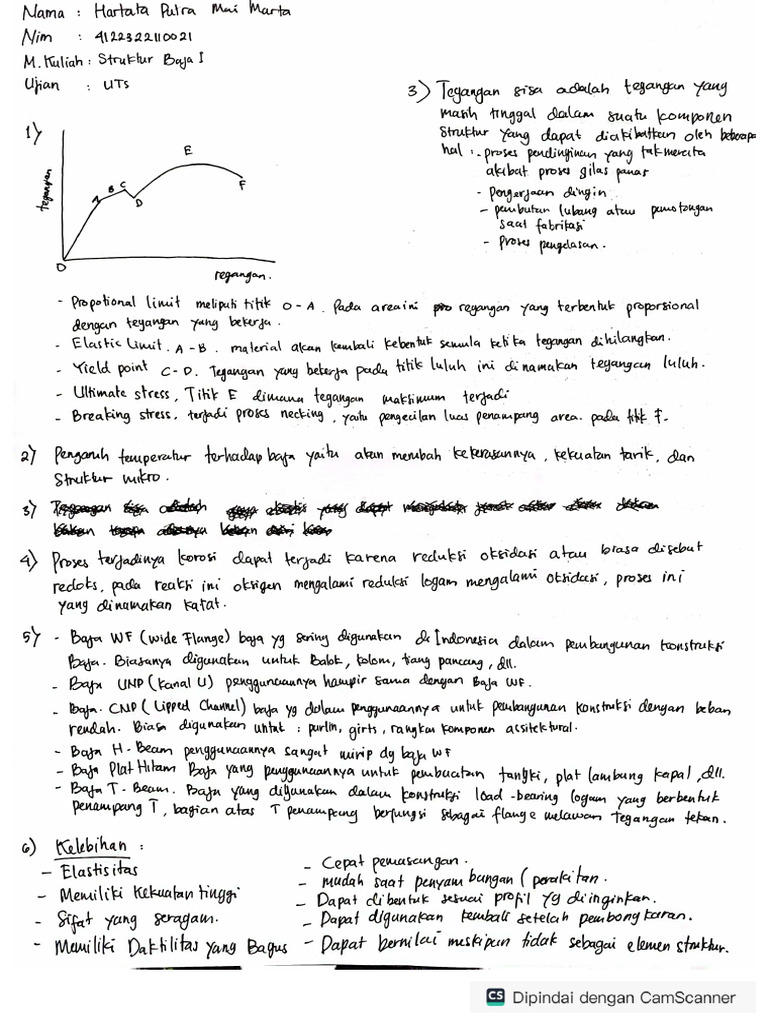 Nama : Hartata Putra Mai Marta
Nim : 4122322110021
M. Kuliah : Struktur Baja I
Ujian : UTS
1)
tegangan
O
A
B
C
D
E
F
regangan.
- Propotional limit meliputi titik O - A. Pada area ini regangan yang terbentuk proporsional
dengan tegangan yang bekerja.
- Elastic Limit. A - B. material akan kembali kebentuk semula ketika tegangan dihilangkan.
- Yield point C - D. Tegangan yang bekerja pada titik luluh ini dinamakan tegangan luluh.
- Ultimate stress, Titik E dimana tegangan maksimum terjadi
- Breaking stress, terjadi proses necking, yaitu pengecilan luas penampang area. pada titik F.
2) Pengaruh temperatur terhadap baja yaitu akan merubah kekerasannya, kekuatan tarik, dan
Struktur mikro.
3) Tegangan sisa adalah tegangan yang
masih tinggal dalam suatu komponen
Struktur yang dapat diakibatkan oleh beberapa
hal : - proses pendinginan yang tak merata
akibat proses gilas panas
- Pengerjaan dingin
- pembutan lubang atau pemotongan
saat fabrikasi
- Proses pengelasan.
3)
4) Proses terjadinya korosi dapat terjadi karena reduksi oksidasi atau biasa disebut
redoks, pada reaksi ini oksigen mengalami reduksi logam mengalami oksidasi, proses ini
yang dinamakan katat.
5) - Baja WF (Wide Flange) baja yg sering digunakan di Indonesia dalam pembangunan konstruksi
Baja. Biasanya digunakan untuk Balok, kolom, tiang pancang, dll.
- Baja UNP (Kanal U) penggunaannya hampir sama dengan Baja WF.
- Baja. CNP (Lipped Channel) baja yg dalam penggunaannya untuk pembangunan konstruksi dengan beban
rendah. Biasa digunakan untuk : purlin, girts, rangka komponen assitektural.
- Baja H-Beam penggunaannya sangat mirip dg baja WF
- Baja Plat Hitam Baja yang penggunaannya untuk pembuatan tangki, plat lambung kapal, dll.
- Baja T-Beam. Baja yang digunakan dalam konstruksi load-bearing logam yang berbentuk
penampang T, bagian atas T penampang berfungsi sebagai flange melawan tegangan tekan.
6) Kelebihan :
- Elastisitas
- Memiliki Kekuatan tinggi
- Sifat yang seragam.
- Memiliki Daktilitas yang Bagus
- Cepat pemasangan.
- mudah saat penyambangan (perakitan.
- Dapat dibentuk sesuai profil yg diinginkan.
- Dapat digunakan kembali setelah pembongkaran.
- Dapat bernilai meskipun tidak sebagai elemen struktur.
CS Dipindai dengan CamScanner